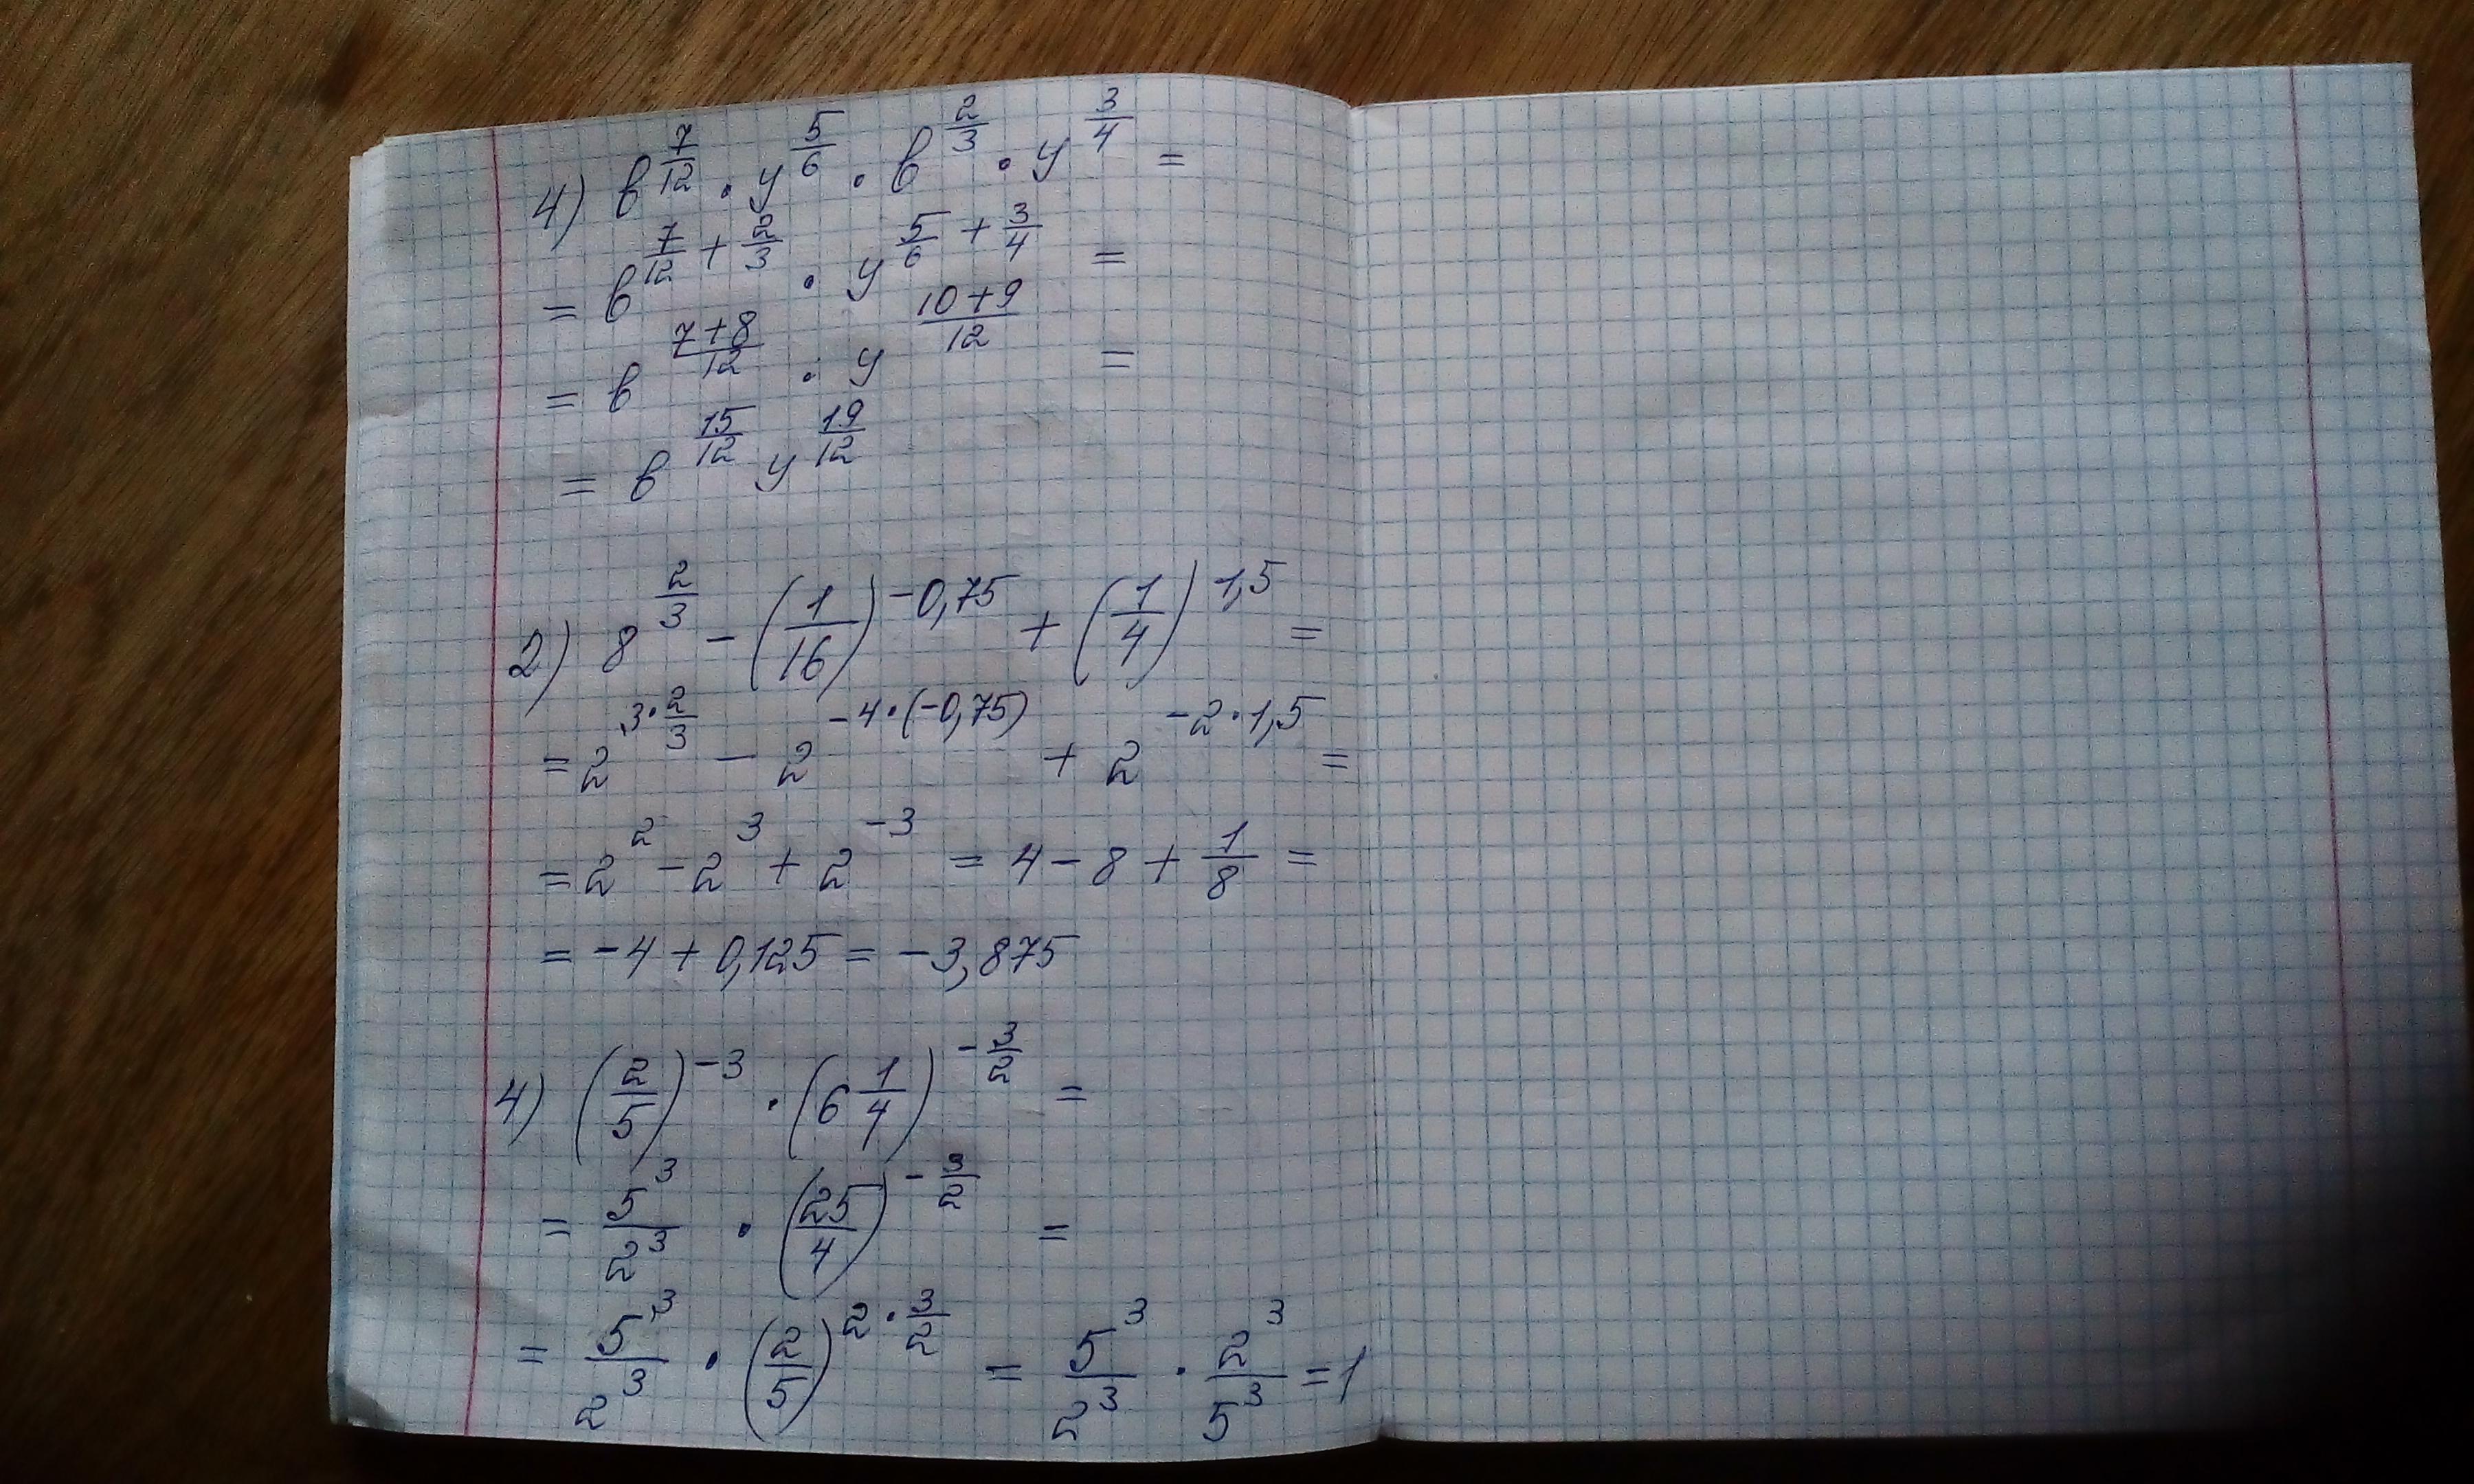 4) b^{7/12} · y^{5/6} · b^{2/3} · y^{3/4} =
= b^{7/12 + 2/3} · y^{5/6 + 3/4} =
= b^{(7+8)/12} · y^{(10+9)/12} =
= b^{15/12} y^{19/12}
2) 8^{2/3} - (1/16)^{-0,75} + (1/4)^{1,5} =
= 2^{3·2/3} - 2^{-4·(-0,75)} + 2^{-2·1,5} =
= 2^2 - 2^3 + 2^{-3} = 4 - 8 + 1/8 =
= -4 + 0,125 = -3,875
4) (2/5)^{-3} · (6 1/4)^{-3/2} =
= 5^3/2^3 · (25/4)^{-3/2} =
= 5^3/2^3 · (2/5)^{2·3/2} = 5^3/2^3 · 2^3/5^3 = 1